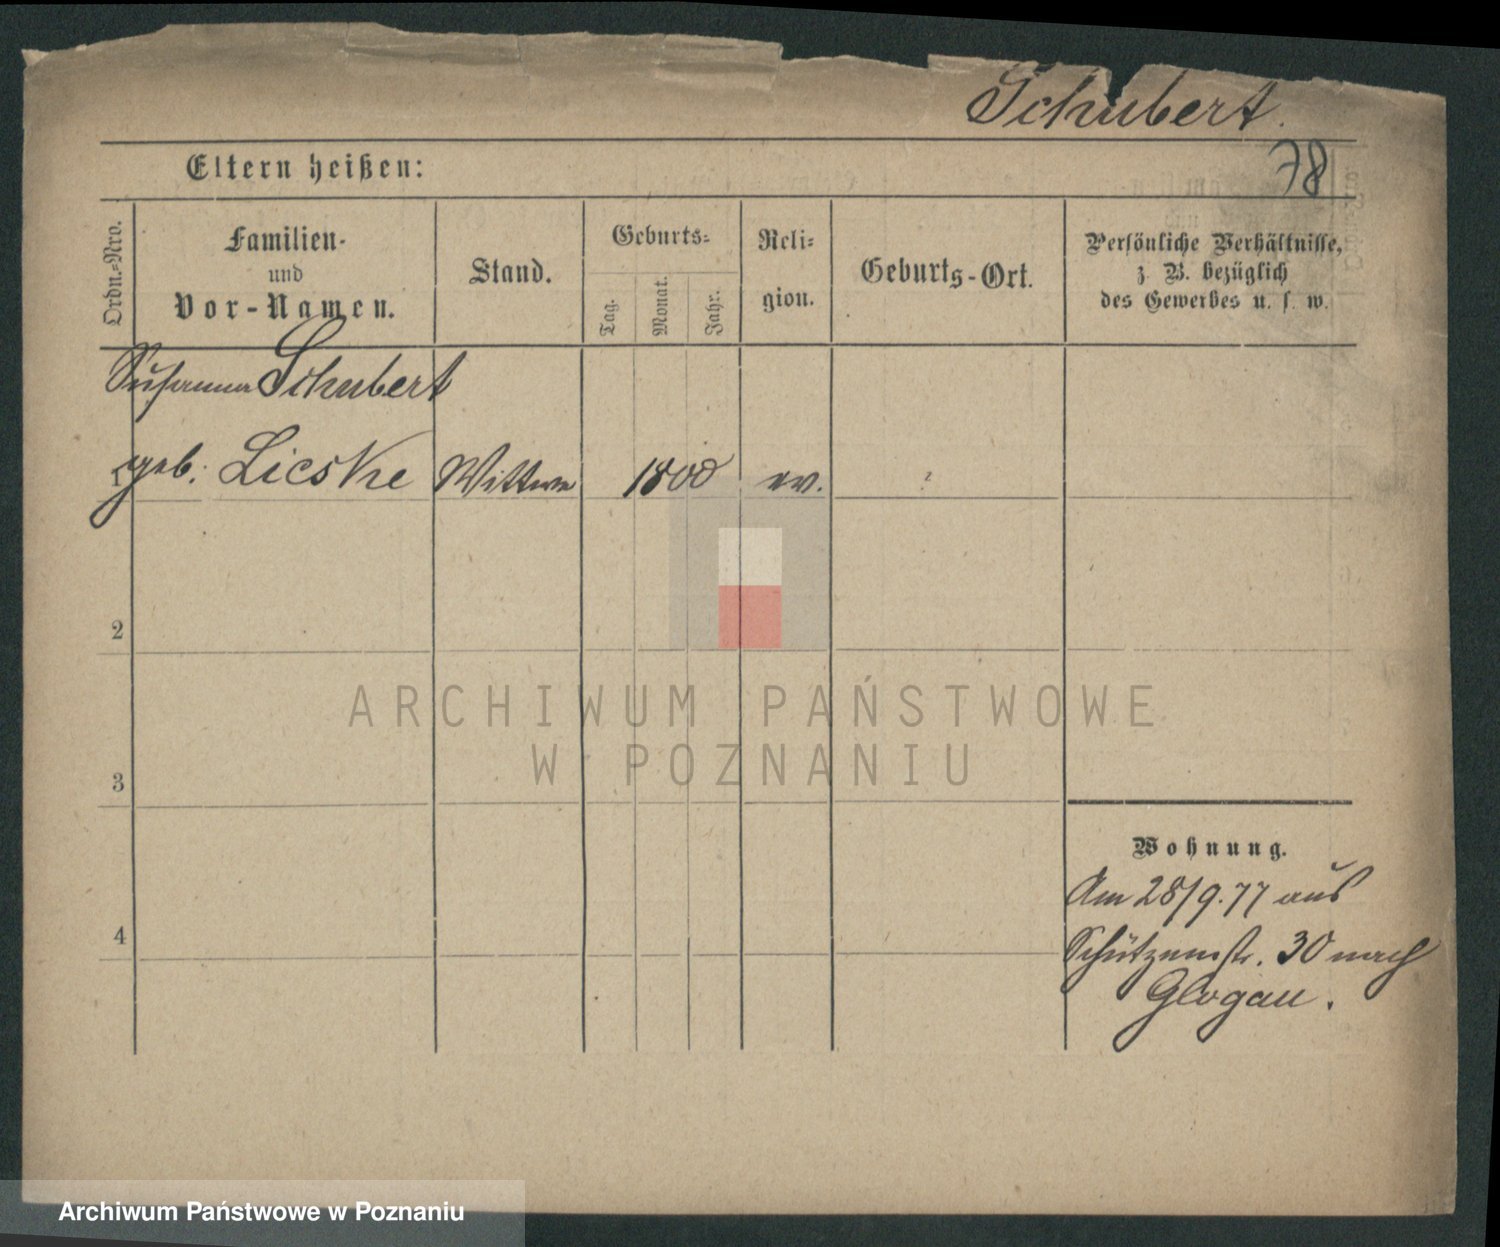 Schubert.
78
Eltern heißen:
Ordn.=Nro.
Familien-
und
Vor-Namen.
Stand.
Geburts=
Tag.
Monat.
Jahr.
Reli=
gion.
Geburts-Ort.
Persönliche Verhältnisse,
z. B. bezüglich
des Gewerbes u. s. w.
Susanna Schubert
geb. Lieske Wittwe 1800 ev. ?
2
3
4
Wohnung.
Am 28/9.77 aus
Schützenstr. 30 nach
Glogau.
ARCHIWUM PAŃSTWOWE
W POZNANIU
Archiwum Państwowe w Poznaniu